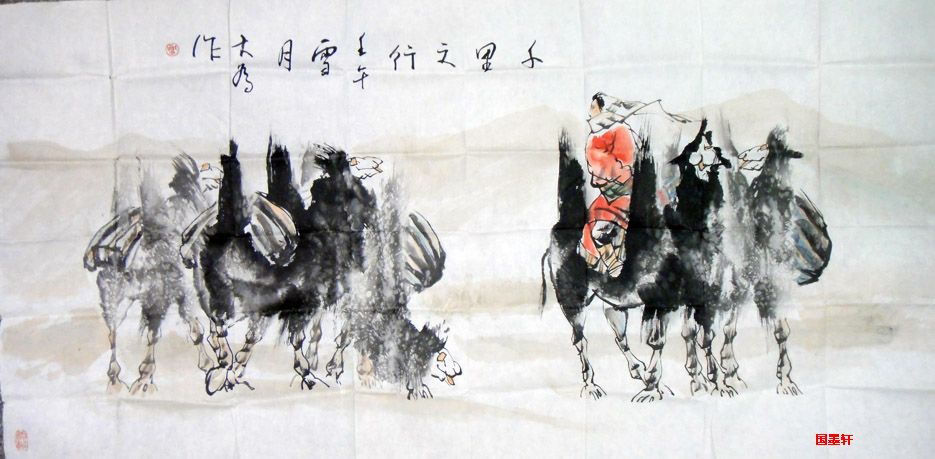 千里之行壬午雪月大為作
国墨轩